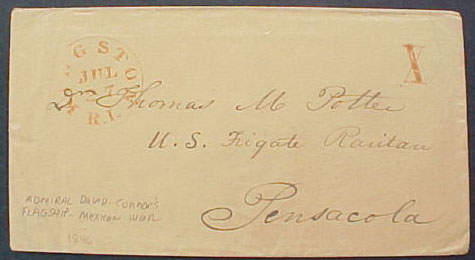 KINGSTON
JUL
R.I.
X
Dr Thomas M Potter
U.S. Frigate Raritan
Pensacola
ADMIRAL DAVID CONNOR'S
FLAGSHIP - MEXICAN WAR
1846